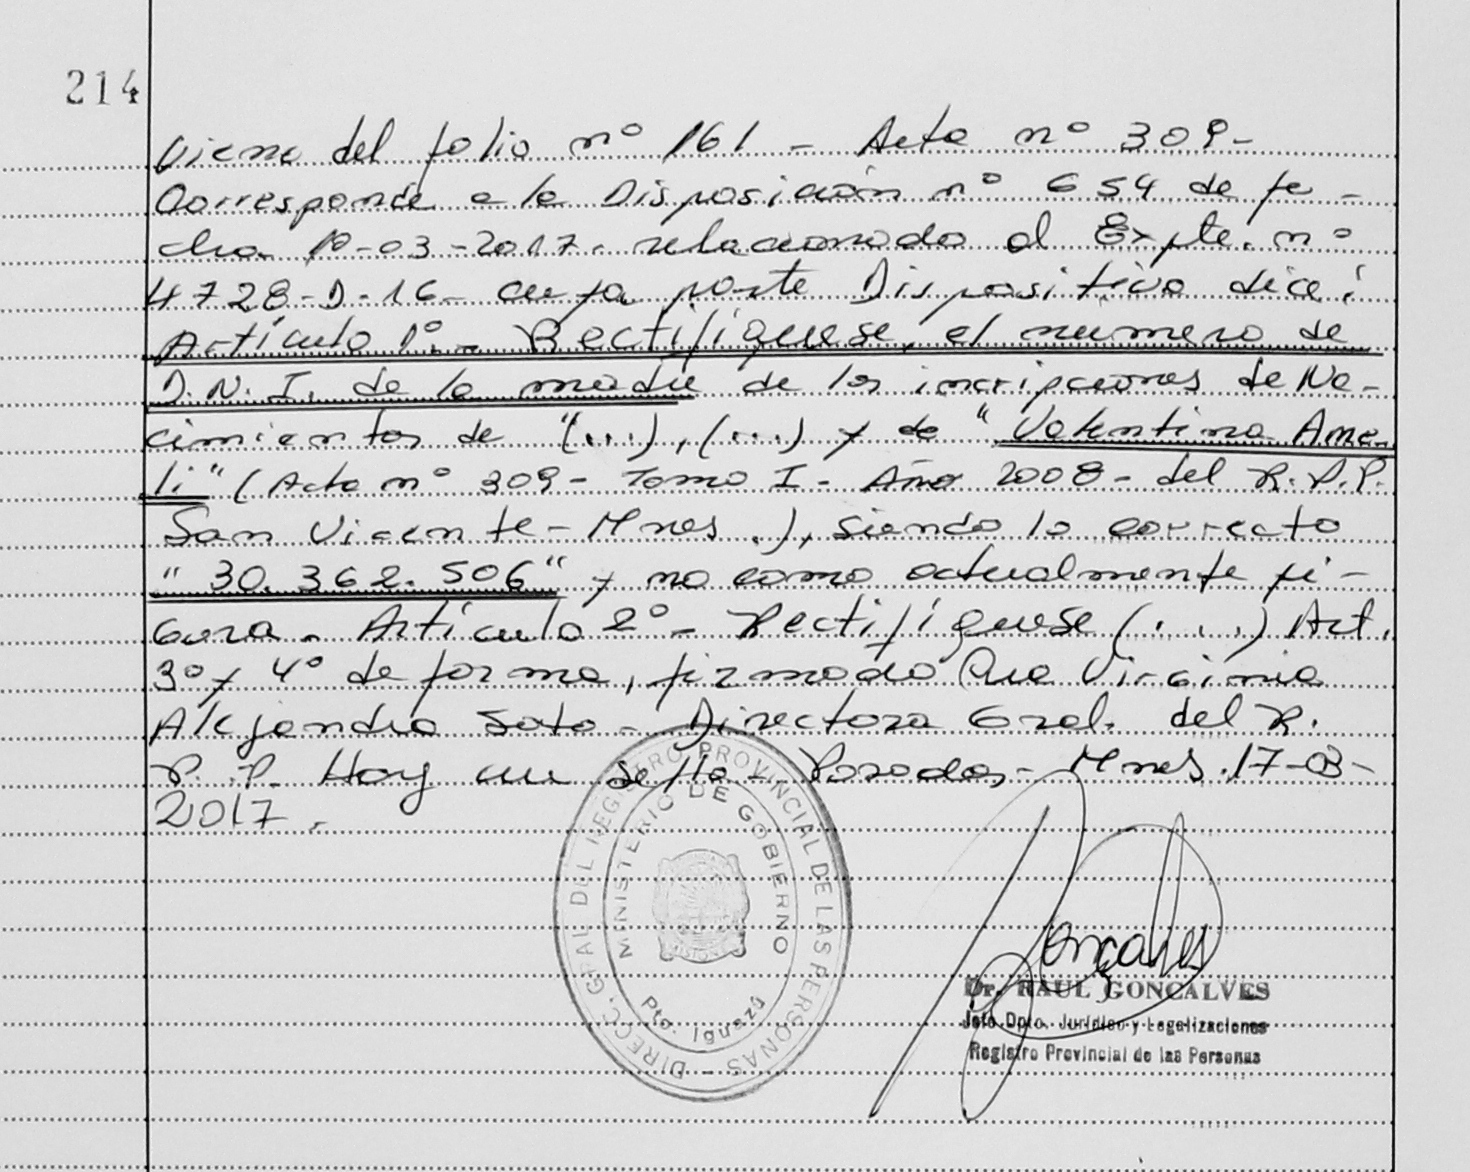 214
Viene del folio nº 161 - Acta nº 309-
Corresponde a la Disposición nº 654 de fe-
cha 1º-03-2017. relacionado al Expte. nº
4728-D-16- cuya parte Dispositiva dice:
Artículo 1º.- Rectifíquese, el número de
D.N.I. de la madre de las incripciones de Na-
cimientos de "(...), (...) y de "Valentina Ame-
li" (Acta nº 309- Tomo I - Año 2008- del R.P.P.
San Vicente - Mnes.), siendo lo correcto
"30.362.506" y no como actualmente fi-
gura. Artículo 2º- Rectifíquese (...) Art.
3º y 4º de forma, firmado Dra Virginia
Alejandra Soto - Directora Gral. del R.
P.P. Hay un sello - Posadas, - Mnes. 17-03-
2017.
DIRECC. GRAL DEL REGISTRO PROVINCIAL DE LAS PERSONAS -
MINISTERIO DE GOBIERNO
Pto. Iguazú
Goncalves
Dr. RAUL GONCALVES
Jefe Dpto. Jurídico y Legalizaciones
Registro Provincial de las Personas